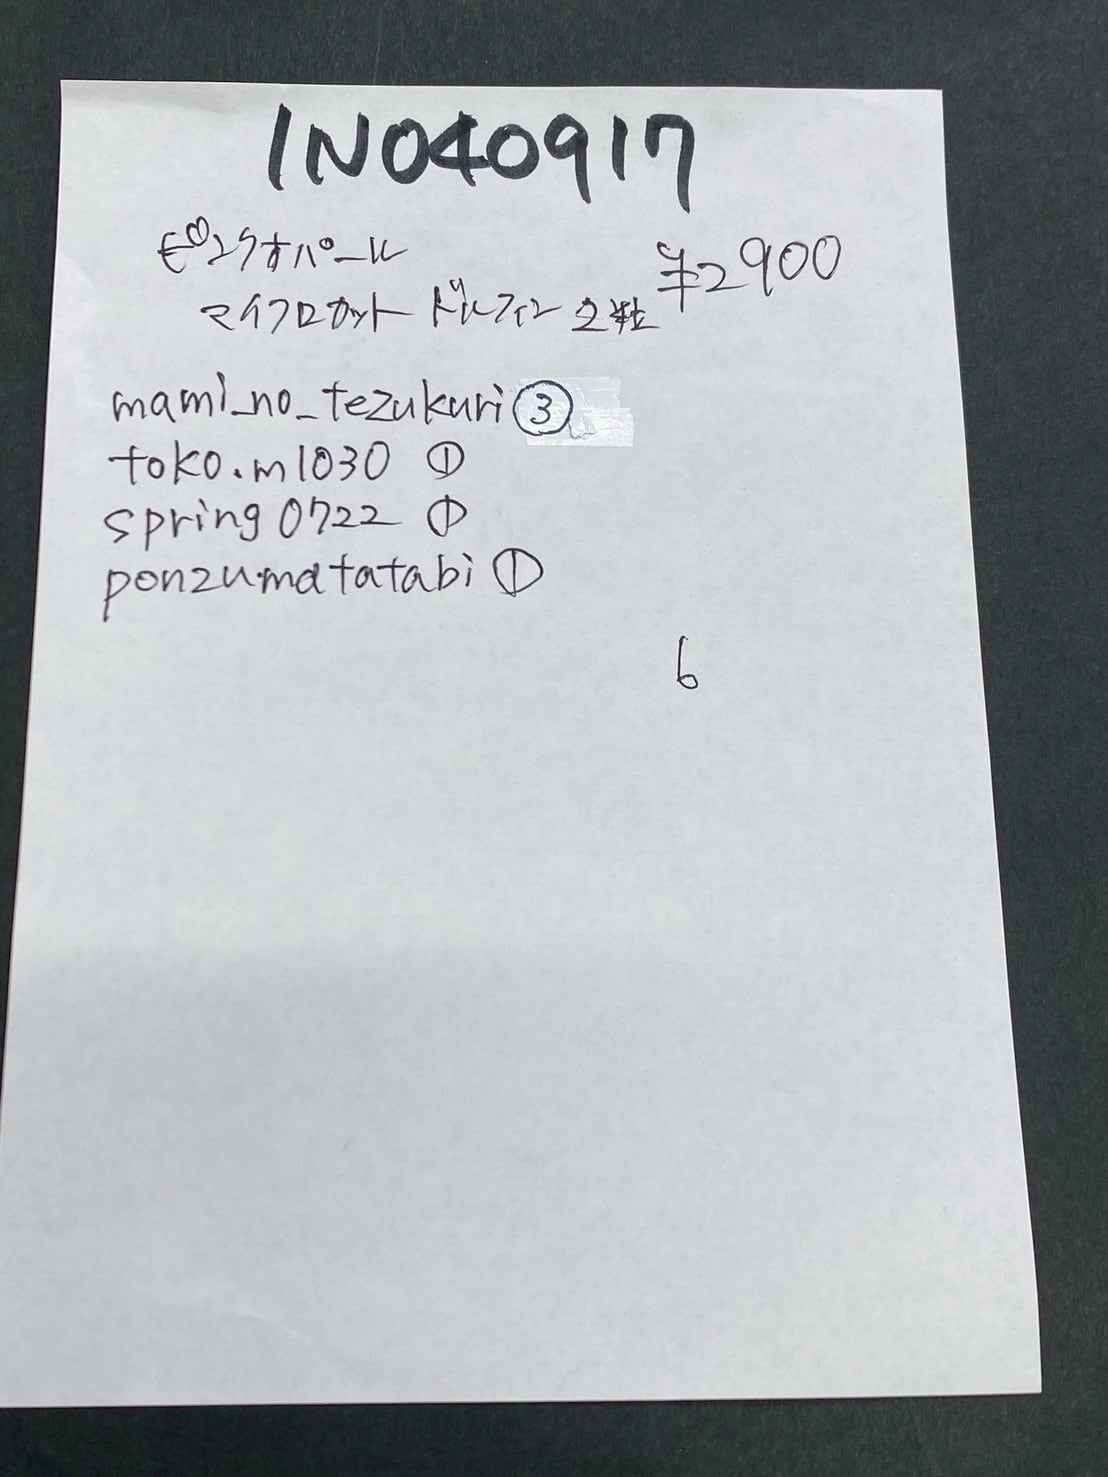 INO40917
ピンクオパール ¥2900
マイクロカット ドルフィン 2粒
mami_no_tezukuri③
toko.m1030 ①
spring0722 ①
ponzumatatabi①
6